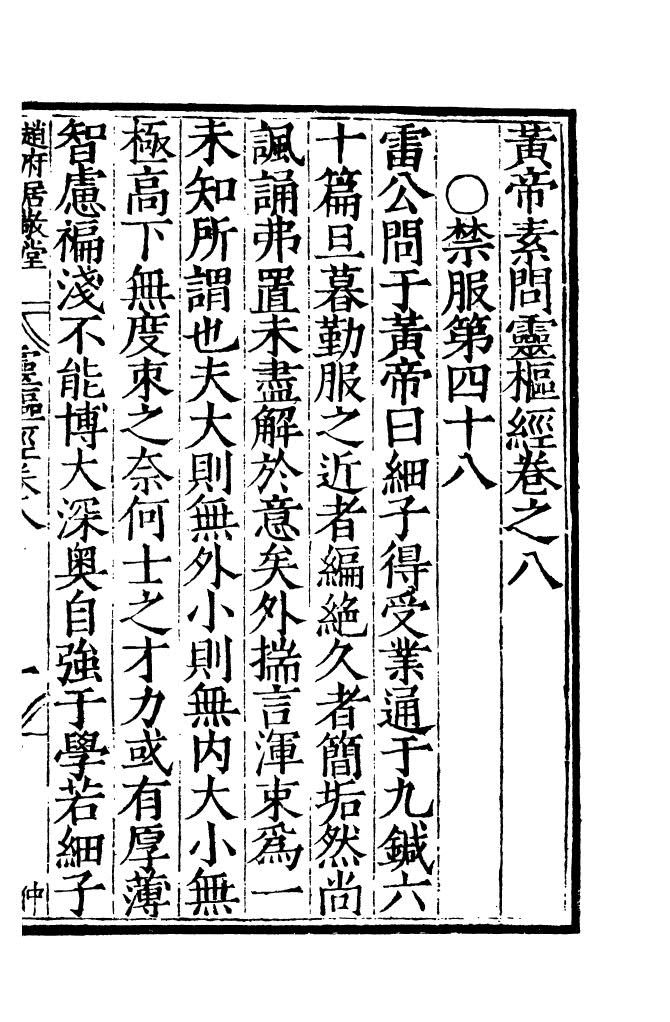 黃帝素問靈樞經卷之八
○禁服第四十八
雷公問于黃帝曰細子得受業通于九鍼六
十篇旦暮勤服之近者編絶久者簡垢然尚
諷誦弗置未盡解於意矣外揣言渾束爲一
未知所謂也夫大則無外小則無内大小無
極高下無度束之奈何士之才力或有厚薄
智慮褊淺不能博大深奧自強于學若細子
趙府居敬堂 靈樞經卷八 一 仲